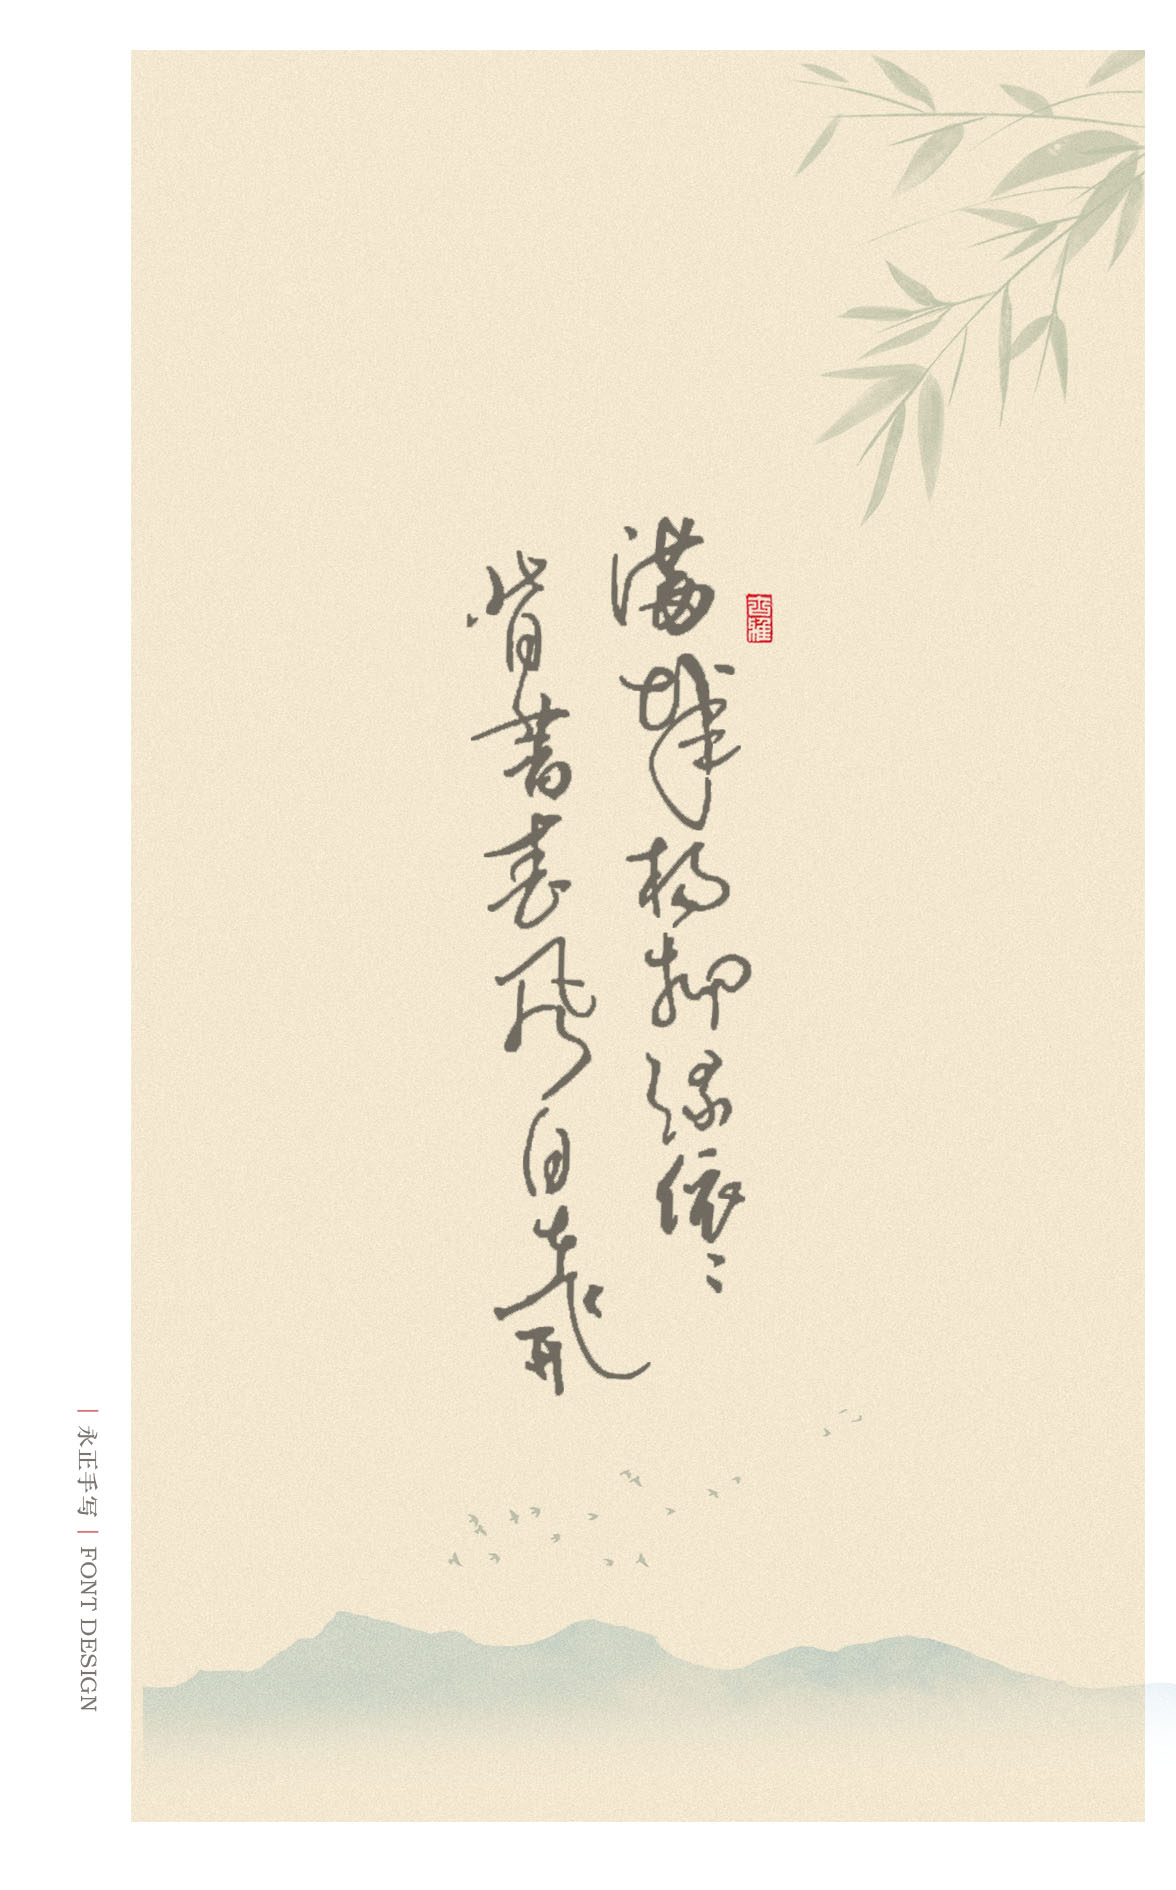 满城杨柳绿依々
背著春风自在飛
永正手写
FONT DESIGN